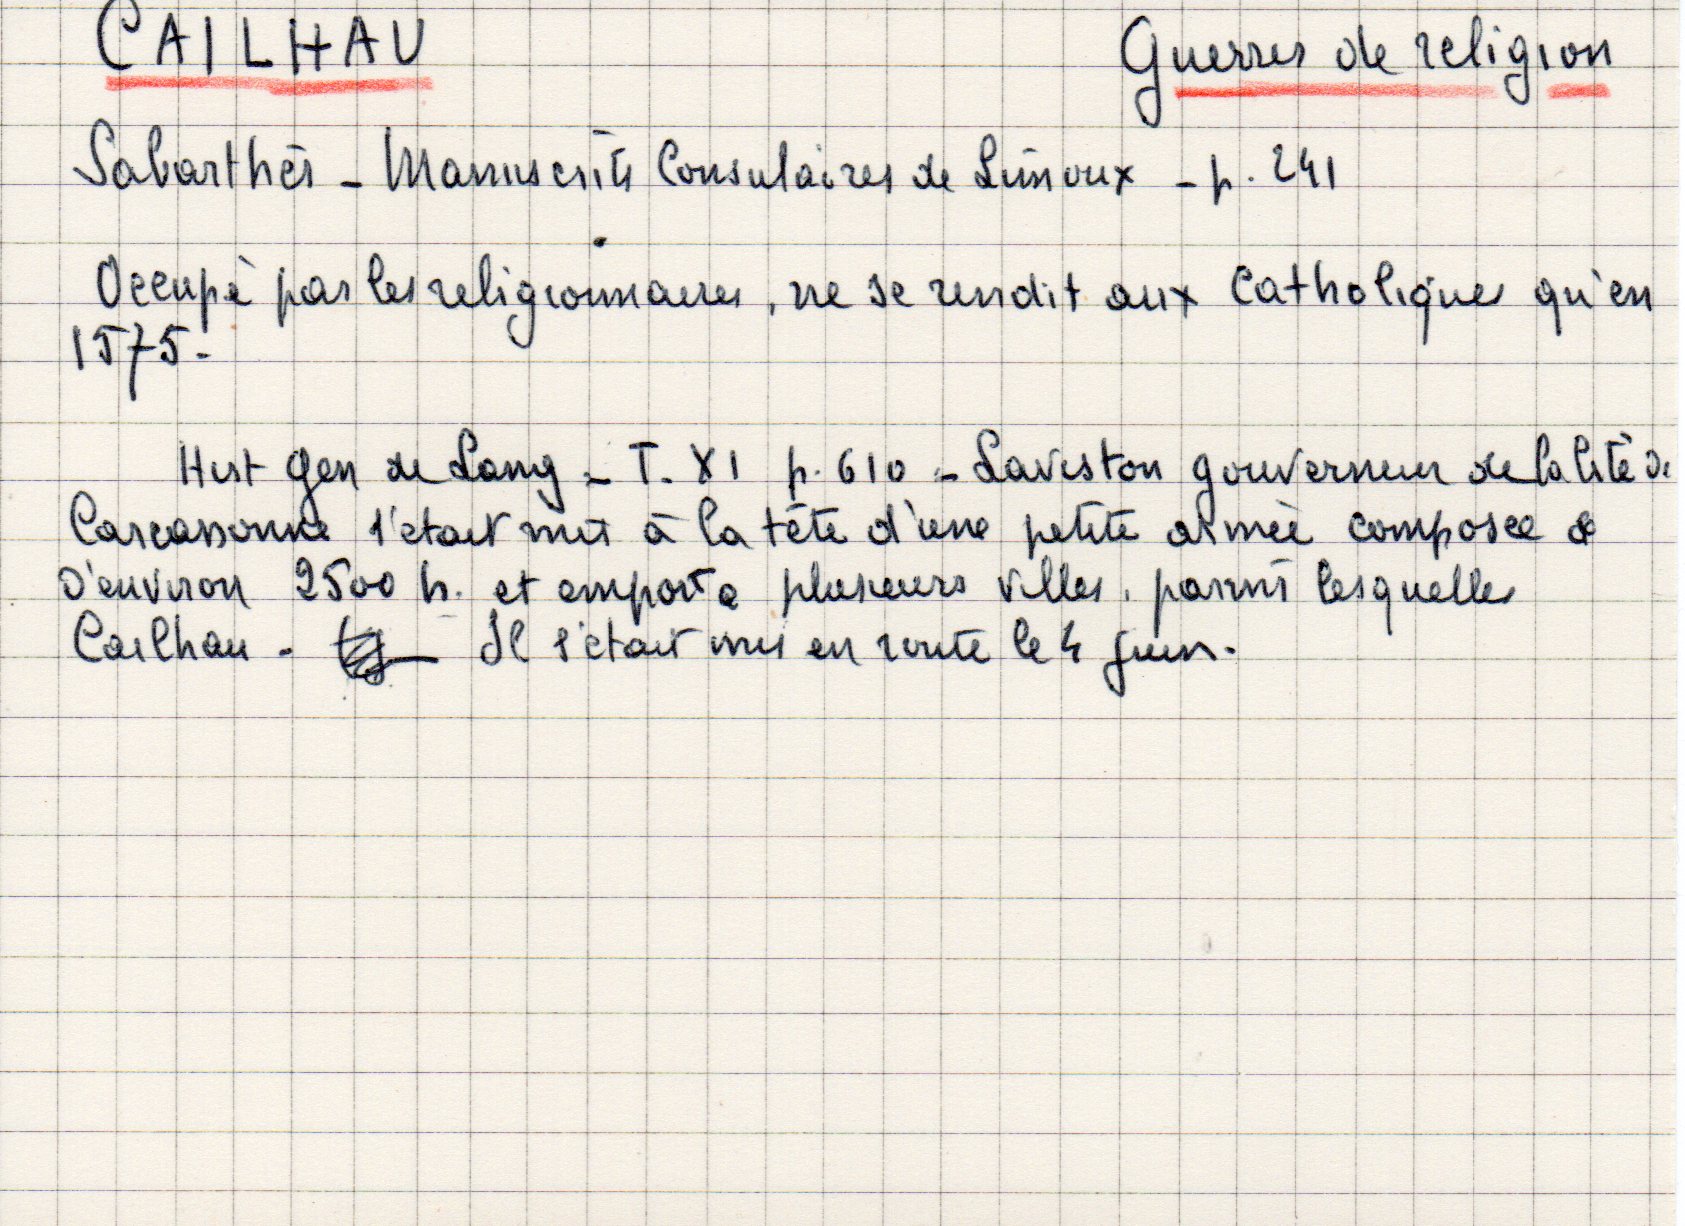 CAILHAU Guerres de religion
Sabarthès - Manuscrits Consulaires de Limoux - p. 241
Occupé par les religionnaires, ne se rendit aux Catholiques qu'en
1575.
Hist Gen de Lang - T. XI p. 610 - Laviston gouverneur de la Cité de
Carcassonne s'était mis à la tête d'une petite armée composée
d'environ 2500 h. et emporta plusieurs villes, parmi lesquelles
Cailhau - Il s'était mis en route le 4 juin.